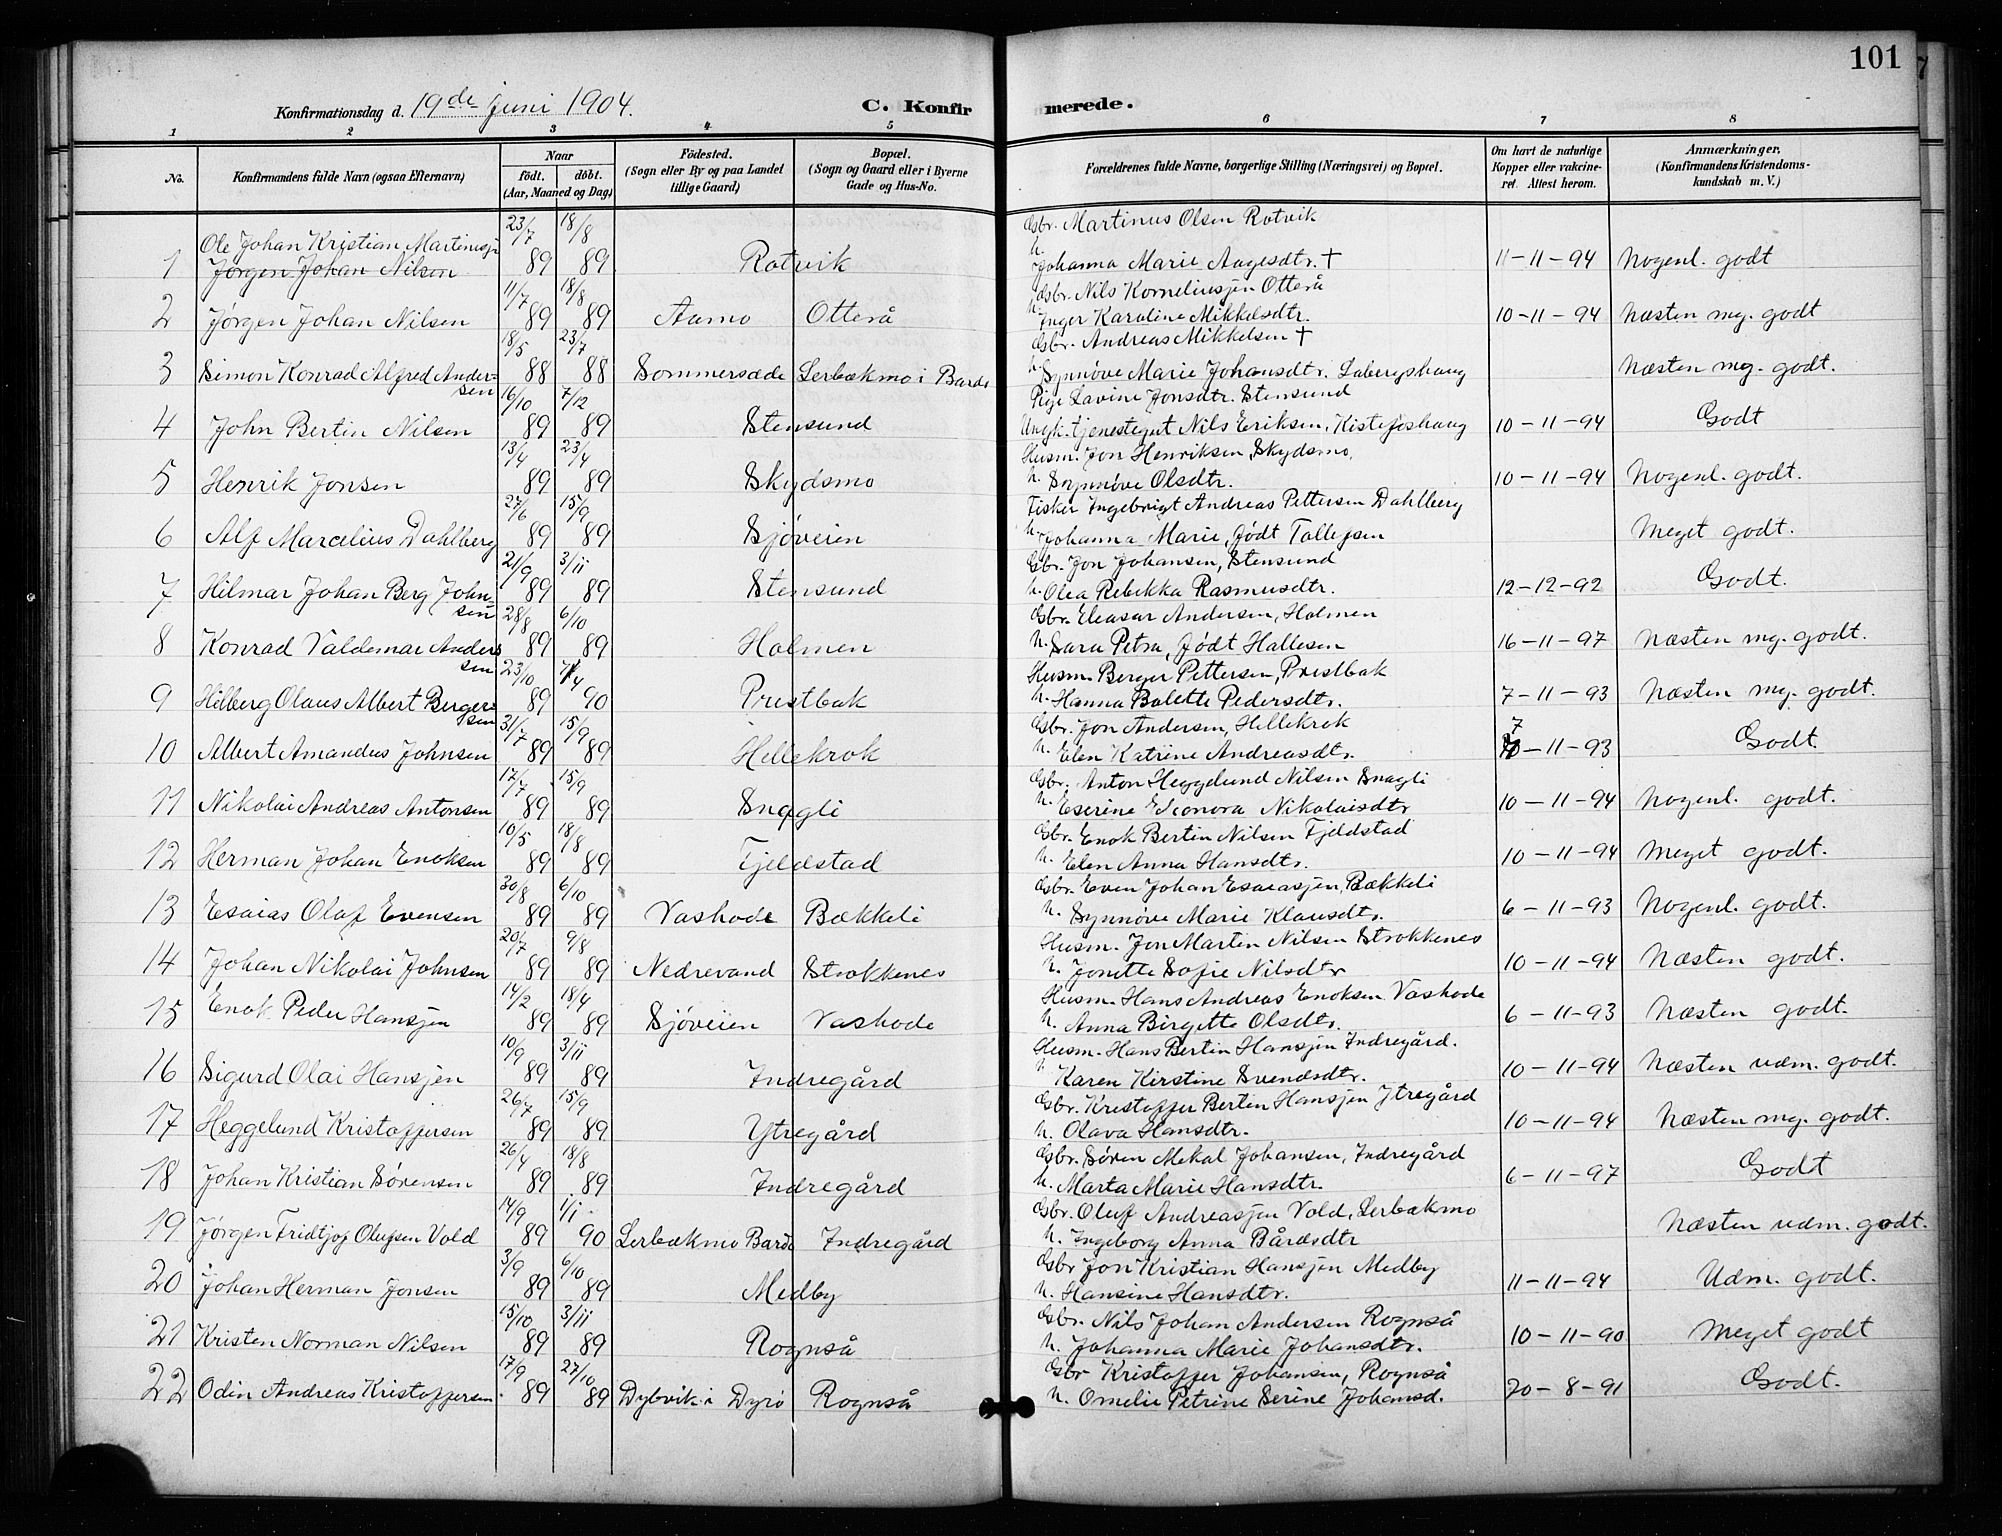 101
Konfirmationsdag d. 19de Juni 1904. C. Konfirmerede.
1 2 3 4 5 6 7 8
No. Konfirmandens fulde Navn (ogsaa Efternavn) Naar födt. döbt. (Aar, Maaned og Dag) Födested. (Sogn eller By og paa Landet tillige Gaard) Bopæl. (Sogn og Gaard eller i Byerne Gade og Hus-No. Forældrenes fulde Navne, borgerlige Stilling (Næringsvei) og Bopæl. Om havt de naturlige Kopper eller vakcineret. Attest herom. Anmærkninger, (Konfirmandens Kristendomskundskab m. V.)
23/7 18/8 Gbr. Martinus Olsen Rotvik
Ole Johan Kristian Martinussen
1 Jørgen Johan Nilsen 89 89 Rotvik h. Johanna Marie Aagesdtr. † 11-11-94 Nogenl. godt
11/7 18/8 Gbr. Nils Korneliussen Otterå
2 Jørgen Johan Nilsen 89 89 Aamo Otterå h. Inger Karoline Mikkelsdtr. 10-11-94 Næsten mg. godt
18/5 23/7 Gbr. Andreas Mikkelsen †
3 Simon Konrad Alfred Andersen 88 88 Sommersæde Lerbækmo i Bardo h. Synnøve Marie Johansdtr. Næsten mg. godt.
16/10 7/12 Pige Lavine Jonsdtr. Stensund
4 John Bertin Nilsen 89 89 Stensund Ungk. tjenestegut Nils Eriksen, Kistefoshaug 10-11-94 Godt
13/4 23/4 Husm. Jon Henriksen, Skydsmo,
5 Henrik Jonsen 89 89 Skydsmo h. Synnøve Olsdtr. 10-11-94 Nogenl. godt.
27/6 15/9 Fisker Ingebrigt Andreas Pettersen Dahlberg
6 Alf Marcelius Dahlberg 89 89 Sjøveien h. Johanna Marie, født Tollefsen Meget godt.
21/9 3/11 Gbr. Jon Johansen, Stensund
7 Hilmar Johan Berg Johnsen 89 89 Stensund h. Olea Rebekka Rasmusdtr. 12-12-92 Godt.
28/8 6/10 Gbr. Eleasar Andersen, Holmen
8 Konrad Valdemar Anderssen 89 89 Holmen h. Sara Petra, født Hallesen 16-11-97 Næsten mg. godt.
23/10 7/4 Husm. Berger Pettersen, Prestbak
9 Hilberg Olaus Albert Bergersen 89 90 Prestbak h. Hanna Bolette Pedersdtr. 7-11-93 Næsten mg. godt.
31/7 15/9 Gbr. Jon Andersen, Hellekrok
10 Albert Amandus Johnsen 89 89 Hellekrok h. Elen Katrine Andreasdtr. 7-11-93 Godt.
17/7 15/9 Gbr. Anton Heggelund Nilsen Snøgli
11 Nikolai Andreas Antonsen 89 89 Snøgli h. Eserine Eleonora Nikolaisdtr 10-11-94 Nogenl. godt.
10/5 18/8 Gbr. Enok Bertin Nilsen Fjeldstad
12 Herman Johan Enoksen 89 89 Fjeldstad h. Elen Anna Hansdtr. 10-11-94 Meget godt.
30/8 6/10 Gbr. Even Johan Esaiassen, Bækkeli
13 Esaias Olaf Evensen 89 89 Vashode Bækkeli h. Synnøve Marie Klausdtr. 6-11-93 Nogenl. godt.
20/7 9/8 Husm. Jon Martin Nilsen Strokkenes
14 Johan Nikolai Johnsen 89 89 Nedrevand Strokkenes h. Jonette Sofie Nilsdtr 10-11-94 Næsten godt.
14/2 18/4 Husm. Hans Andreas Enoksen Vashode
15 Enok Peder Hanssen 89 89 Sjøveien Vashode h. Anna Birgitte Olsdtr. 6-11-93 Næsten godt.
10/9 3/11 Husm. Hans Bertin Hanssen Indregård.
16 Sigurd Olai Hanssen 89 89 Indregård h. Karen Kirstine Svendsdtr. 10-11-94 Næsten udm. godt.
26/7 15/9 Gbr. Kristoffer Bertin Hanssen Ytregård
17 Heggelund Kristoffersen 89 89 Ytregård h. Olava Hansdtr. 10-11-94 Næsten mg. godt.
26/4 18/8 Gbr. Søren Mekal Johansen, Indregård
18 Johan Kristian Sørensen 89 89 Indregård h. Marta Marie Hansdtr. 6-11-97 Godt
14/9 1/1 Gbr. Oluf Andreassen Vold, Lerbækmo
19 Jørgen Fridtjof Olufsen Vold 89 90 Lerbækmo Bardo Indregård h. Ingeborg Anna Bårdsdtr Næsten udm. godt.
3/9 6/10 Gbr Jon Kristian Hanssen Medby
20 Johan Herman Jonsen 89 89 Medby h. Hansine Hansdtr. 11-11-94 Udm. godt.
15/10 3/11 Gbr. Nils Johan Andersen Rognså
21 Kristen Norman Nilsen 89 89 Rognså h. Johanna Marie Johansdtr. 10-11-90 Meget godt
17/9 27/10 Gbr Kristoffer Johansen, Rognså
22 Odin Andreas Kristoffersen 89 89 Dybvik i Dyrø Rognså h. Omelie Petrine Serine Johansd. 20-8-91 Godt.